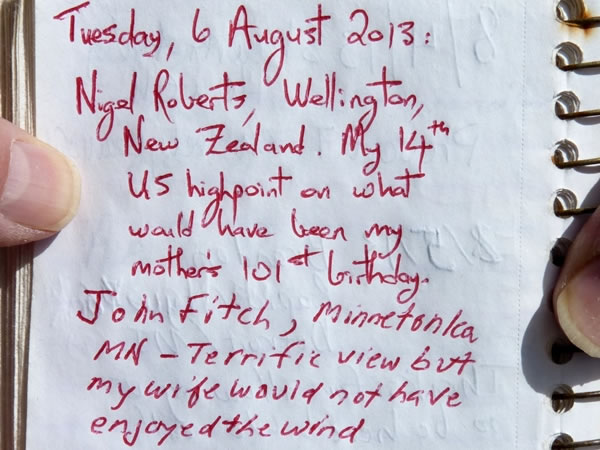 Tuesday, 6 August 2013:
Nigel Roberts, Wellington,
New Zealand. My 14th
US highpoint on what
would have been my
mother's 101st birthday.
John Fitch, Minnetonka
MN - Terrific view but
my wife would not have
enjoyed the wind